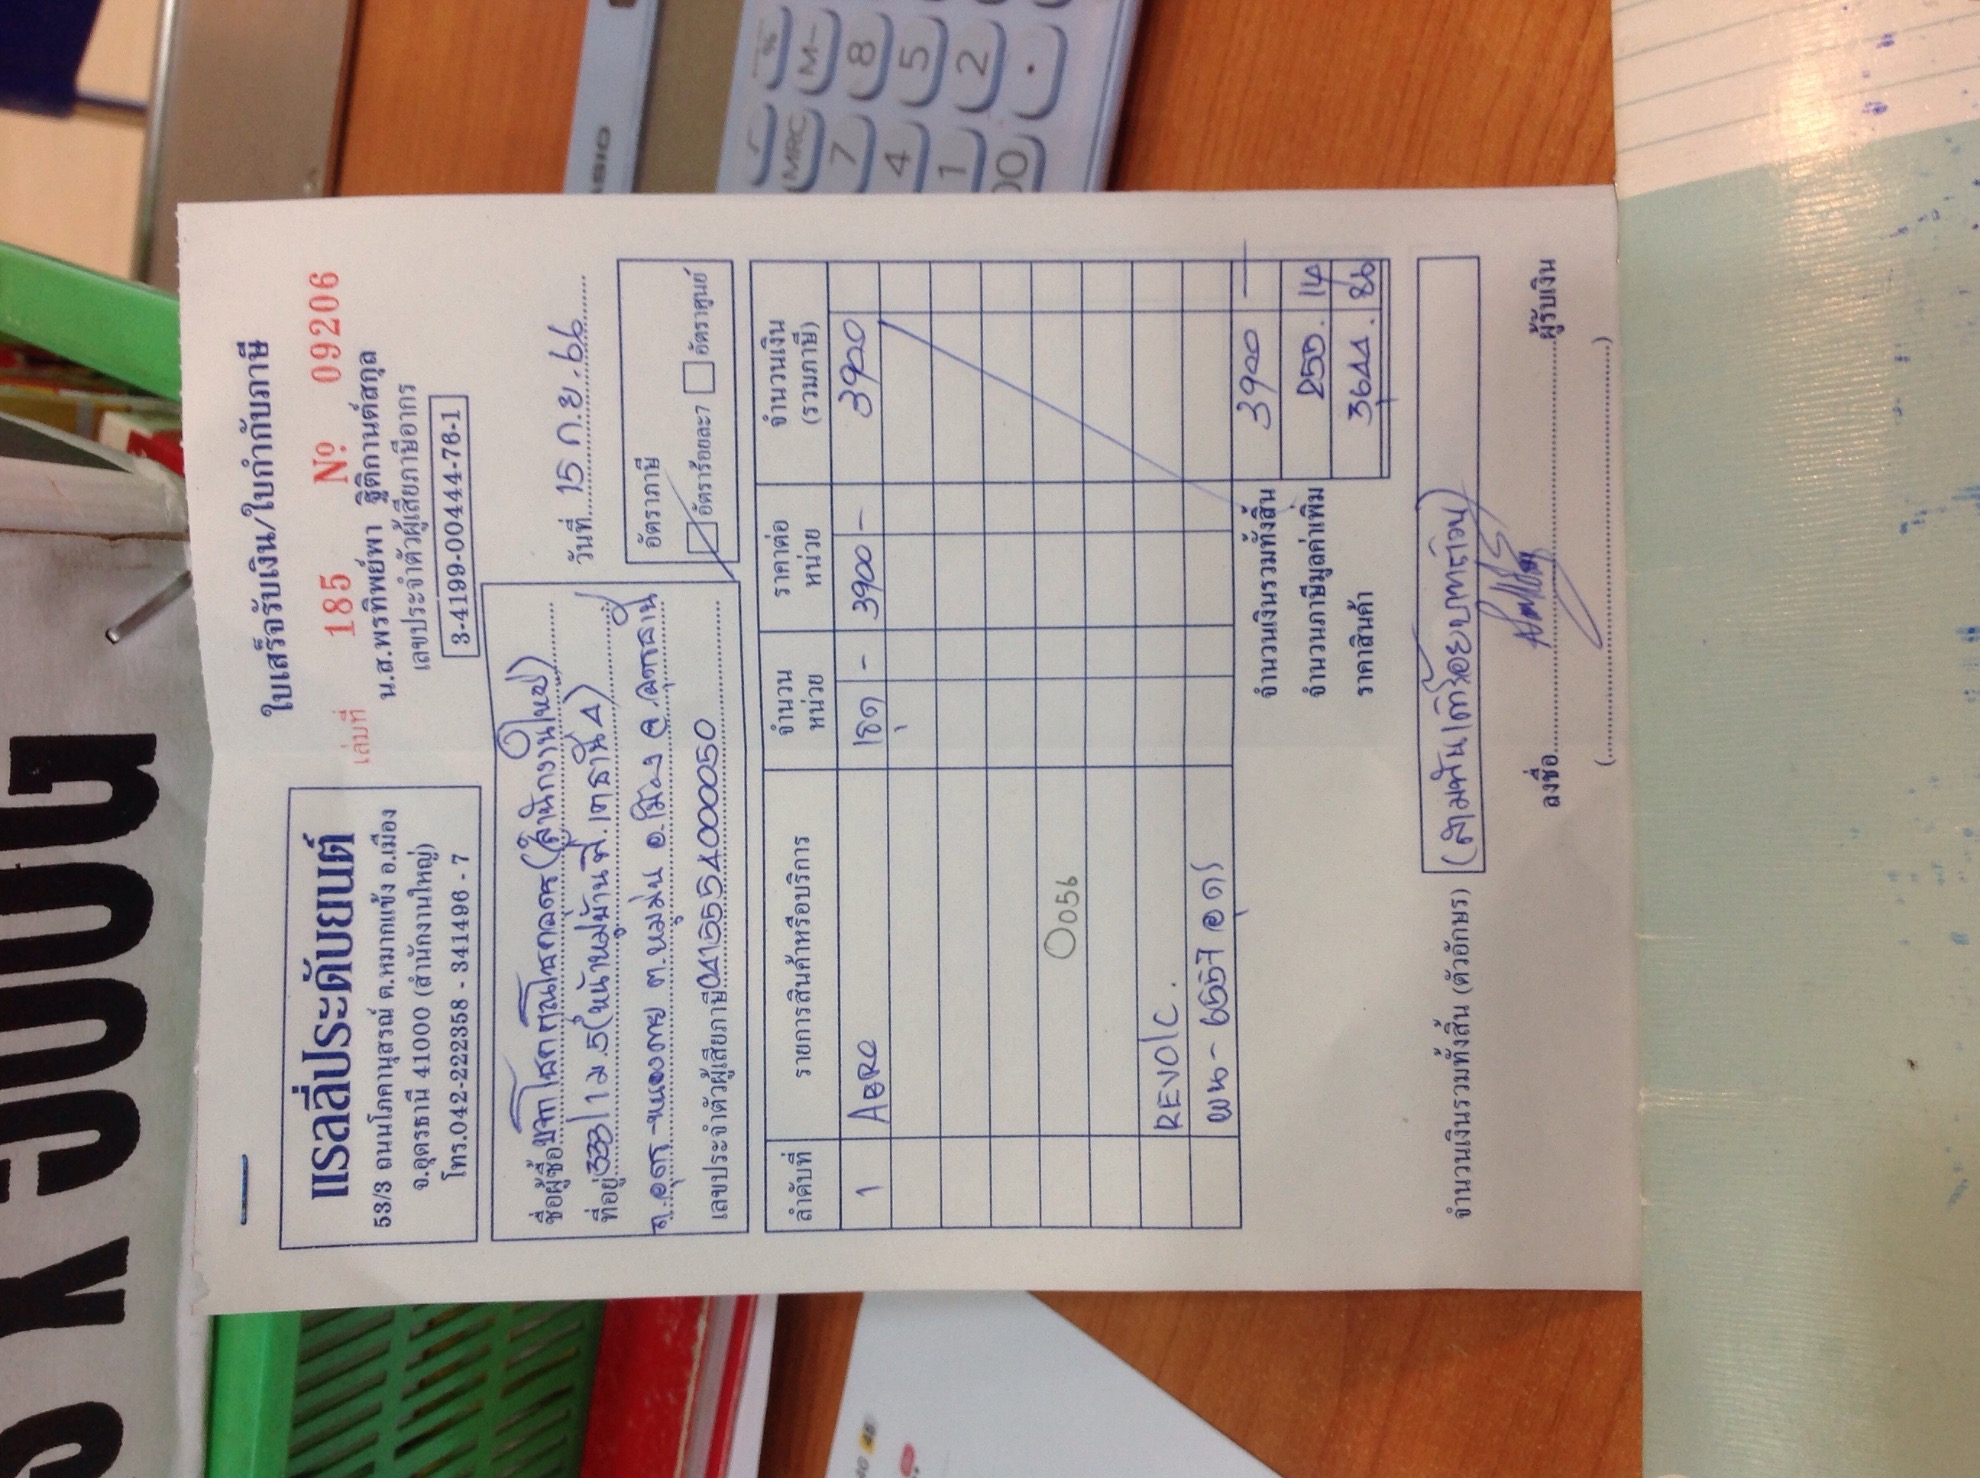 แรลลี่ประดับยนต์
53/3 ถนนโภคานุสรณ์ ต.หมากแข้ง อ.เมือง
จ.อุดรธานี 41000 (สำนักงานใหญ่)
โทร.042-222358 - 341496 - 7
ใบเสร็จรับเงิน/ใบกำกับภาษี
เล่มที่ 185 Nº 09206
น.ส.พรทิพย์พา ฐิติกานต์สกุล
เลขประจำตัวผู้เสียภาษีอากร
3-4199-00444-76-1
วันที่ 15 ก.ย. 66
ชื่อผู้ซื้อ (สำนักงานใหญ่)
ที่อยู่ 333/1 ม.5 (หน้าหมู่บ้านพี.เทธานี 4)
ถ.อุดร-หนองคาย ต.หมูม่น อ.เมือง จ.อุดรธานี
เลขประจำตัวผู้เสียภาษี 0415554000050
อัตราภาษี
อัตราร้อยละ7 อัตราศูนย์
ลำดับที่ รายการสินค้าหรือบริการ จำนวนหน่วย ราคาต่อหน่วย จำนวนเงิน (รวมภาษี)
1 ABRO 1 ชุด - 3900 - 3900
0056
REVO/C.
ผน - 6557 อุดร
จำนวนเงินรวมทั้งสิ้น 3900 -
จำนวนภาษีมูลค่าเพิ่ม 255.14
ราคาสินค้า 3644.86
จำนวนเงินรวมทั้งสิ้น (ตัวอักษร) (สามพันเก้าร้อยบาทถ้วน)
ลงชื่อ ผู้รับเงิน
( )
CASIO
% M- 8 5 2 .
√ MRC 7 4 1 00